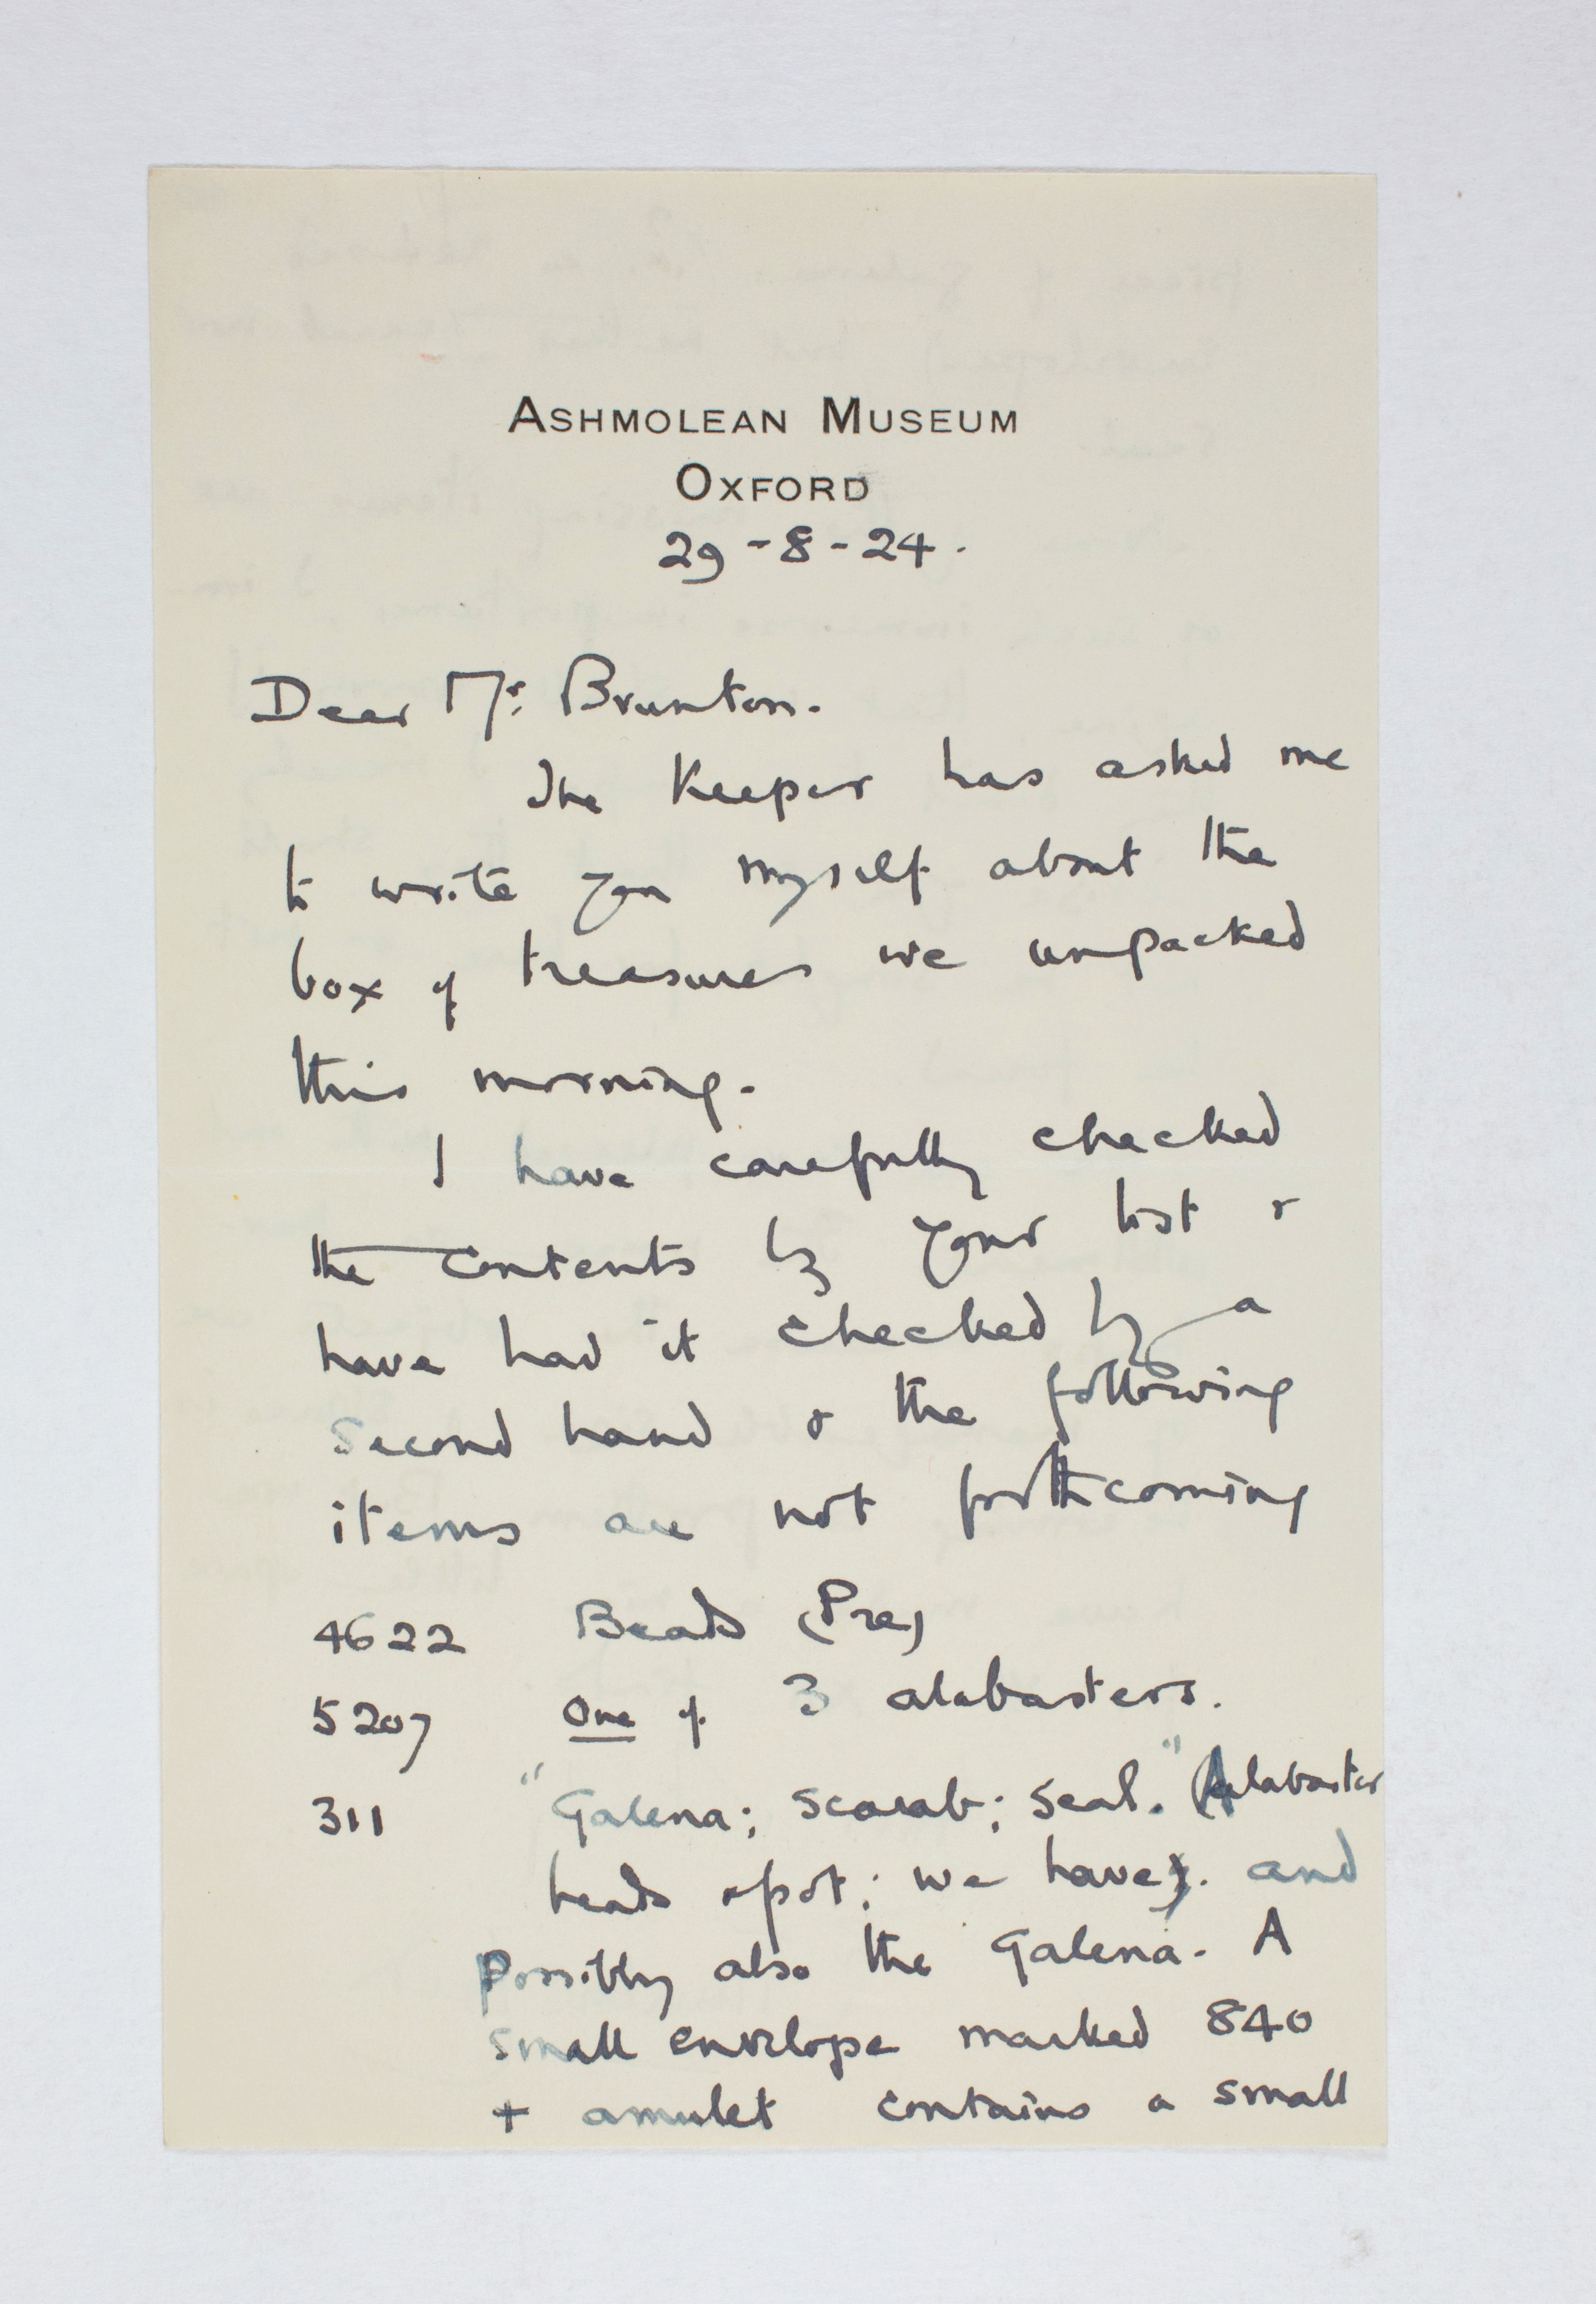 ASHMOLEAN MUSEUM
OXFORD
29-8-24.
Dear Mr. Brunton.
The Keeper has asked me
to write you myself about the
box of treasures we unpacked
this morning.
I have carefully checked
the contents by your list &
have had it checked by a
second hand & the following
items are not forthcoming
4622 Beads (Pre)
5207 One of 3 alabasters.
311 "Galena; scarab; seal." (Alabaster
heads & pot; we have). and
possibly also the Galena. A
small envelope marked 840
+ amulet contains a small